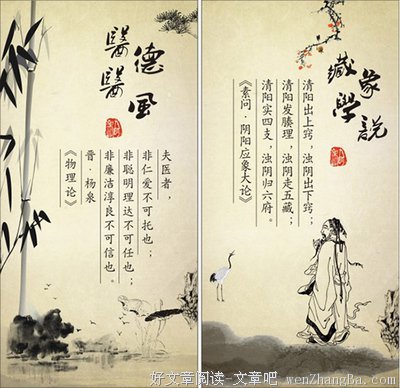 醫德
醫風
夫医者，
非仁爱不可托也；
非聪明理达不可任也；
非廉洁淳良不可信也。
晋·杨泉
《物理论》
藏象
學説
清阳出上窍，浊阴出下窍；
清阳发腠理，浊阴走五藏；
清阳实四支，浊阴归六府。
《素问·阴阳应象大论》
好文章阅读-文章吧-wenZhangBa.com